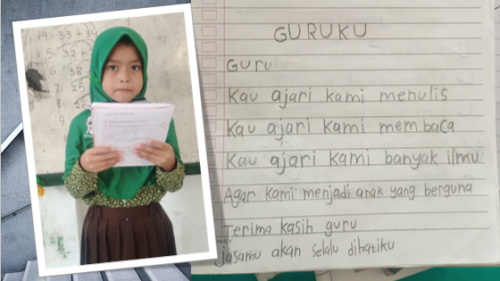 GURUKU
Guru
Kau ajari kami menulis
Kau ajari kami membaca
Kau ajari kami banyak ilmu
Agar kami menjadi anak yang berguna
Terima kasih guru
jasamu akan selalu dihatiku